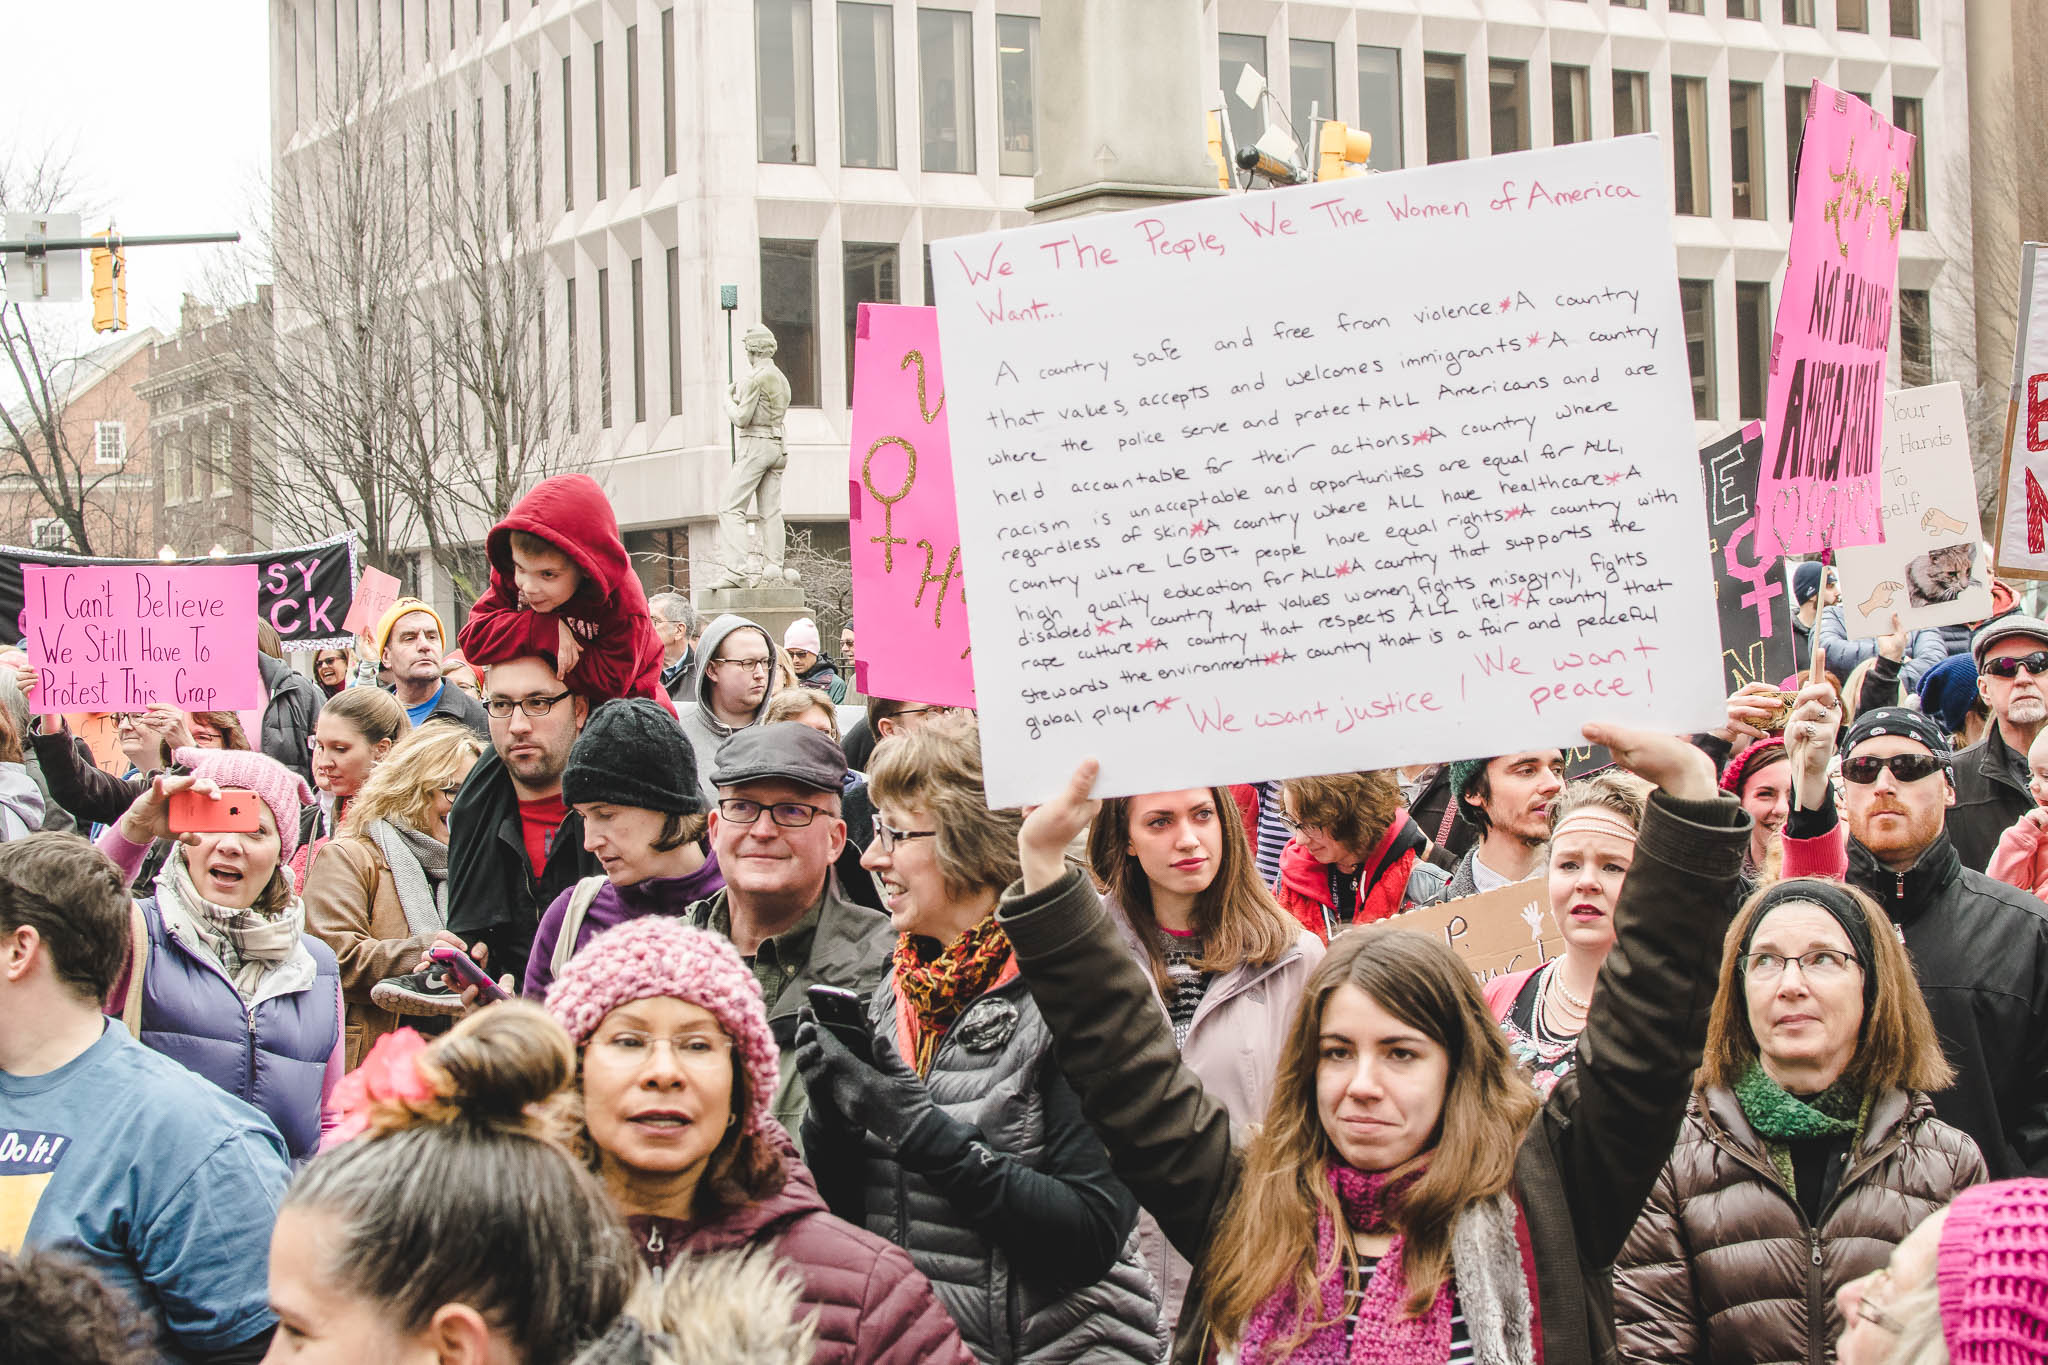 I Can't Believe
We Still Have To
Protest This Crap
SY
CK
Do It!
We The People, We The Women of America
Want...
A country safe and free from violence*A country
that values, accepts and welcomes immigrants*A country
where the police serve and protect ALL Americans and are
held accountable for their actions*A country where
racism is unacceptable and opportunities are equal for ALL,
regardless of skin*A country where ALL have healthcare*A
country where LGBT+ people have equal rights*A country with
high quality education for ALL*A country that supports the
disabled*A country that values women, fights misogyny, fights
rape culture*A country that respects ALL life!*A country that
stewards the environment*A country that is a fair and peaceful
global player*
We want justice! We want
peace!
NOT
Your
Hands
To
self
P.